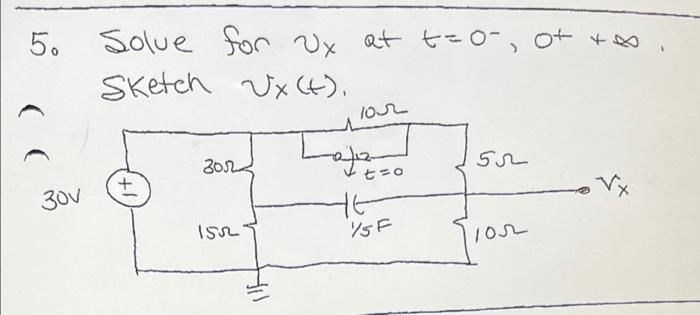 5. Solve for Vx at t=0-, 0+ + ∞.
Sketch Vx(t).
10Ω
30Ω
t=0
5Ω
30V
+
-
Vx
15Ω
1/5F
10Ω